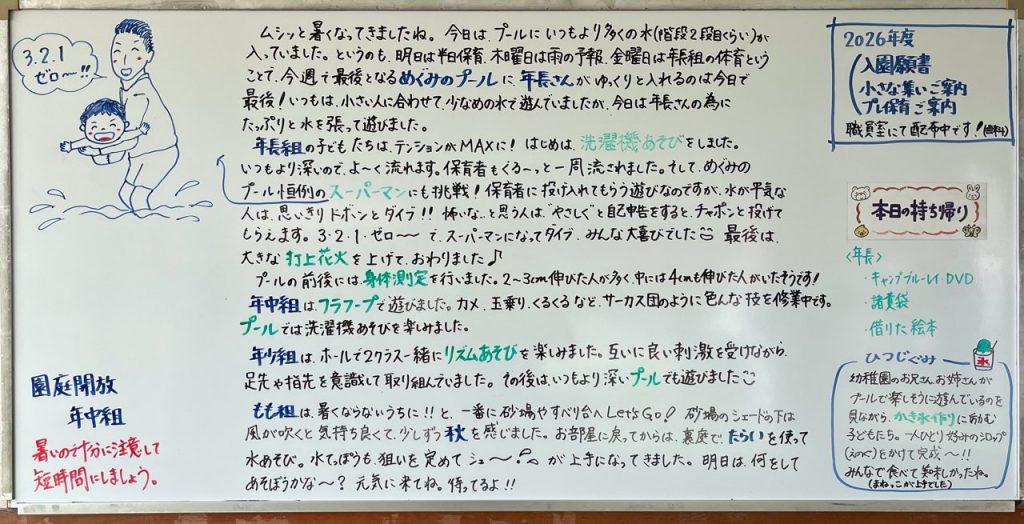 3.2.1
ゼロ〜!!
ムシッと暑くなってきましたね。今日は、プールにいつもより多くの水(階段2段目くらい)が
入っていました。というのも、明日は半日保育、木曜日は雨の予報、金曜日は年長組の体育という
ことで、今週で最後となるめぐみのプールに、年長さんがゆっくりと入れるのは今日で
最後!いつもは、小さい人に合わせて、少なめの水で遊んでいましたが、今日は年長さんの為に
たっぷりと水を張って遊びました。
年長組の子どもたちは、テンションがMAXに!はじめは、洗濯機あそびをしました。
いつもより深いので、よ〜く流れます。保育者もぐる〜っと一周流されました。そして、めぐみの
プール恒例のスーパーマンにも挑戦!保育者に投げ入れてもらう遊びなのですが、水が平気な
人は、思いきりドボンとダイブ!!怖いな…と思う人は"やさしく"と自己申告をすると、チャポンと投げて
もらえます。3・2・1・ゼロ〜〜で、スーパーマンになってダイブ、みんな大喜びでした 最後は、
大きな打上花火を上げて、おわりました♪
プールの前後には、身体測定を行いました。2〜3cm伸びた人が多く、中には4cmも伸びた人がいたそうです!
年中組は、フラフープで遊びました。カメ、玉乗り、くるくるなど、サーカス団のように色んな技を修業中です。
プールでは洗濯機あそびを楽しみました。
年少組は、ホールで2クラス一緒にリズムあそびを楽しみました。互いに良い刺激を受けながら、
足先や指先を意識して取り組んでいました。その後は、いつもより深いプールでも遊びました
もも組は、暑くならないうちに!!と、一番に砂場やすべり台へLet's Go! 砂場のシェードの下は
風が吹くと気持ち良くて、少しずつ秋を感じました。お部屋に戻ってからは、裏庭で、たらいを使って
水あそび。水てっぽうも、狙いを定めてシュ〜 が上手になってきました。明日は、何をして
あそぼうかな〜?元気に来てね。待ってるよ!!
園庭開放
年中組
暑いので十分に注意して
短時間にしましょう。
2026年度
入園願書
小さな集いご案内
プレ保育ご案内
職員室にて配布中です!(無料)
本日の持ち帰り
〈年長〉
・キャンプブルーレイ・DVD
・諸費袋
・借りた絵本
氷
ひつじぐみ
幼稚園のお兄さんお姉さんが
プールで楽しそうに遊んでいるのを
見ながら、かき氷作りに励む
子どもたち。一人ひとり好みのシロップ
(えのぐ)をかけて完成〜!!
みんなで食べて美味しかったね。
(まねっこが上手でした)